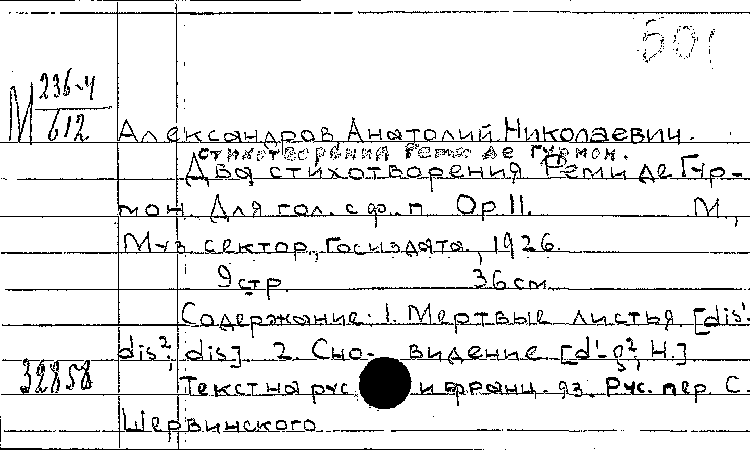 501
М 236-4
612
Александров Анатолий Николаевич.
стихотворения Реми де Гурмон.
Два стихотворения Реми де Гур-
мон. Для гол. с ф.-п. Op. 11. М.,
Муз. сектор, Госиздата, 1926.
9 стр. 36 см.
Содержание: 1. Мертвые листья [dis¹-
dis²; dis]. 2. Сно- видение [d¹-g²; H.]
32858
Текст на рус. и франц. яз. Рус. пер. С.
Шервинского